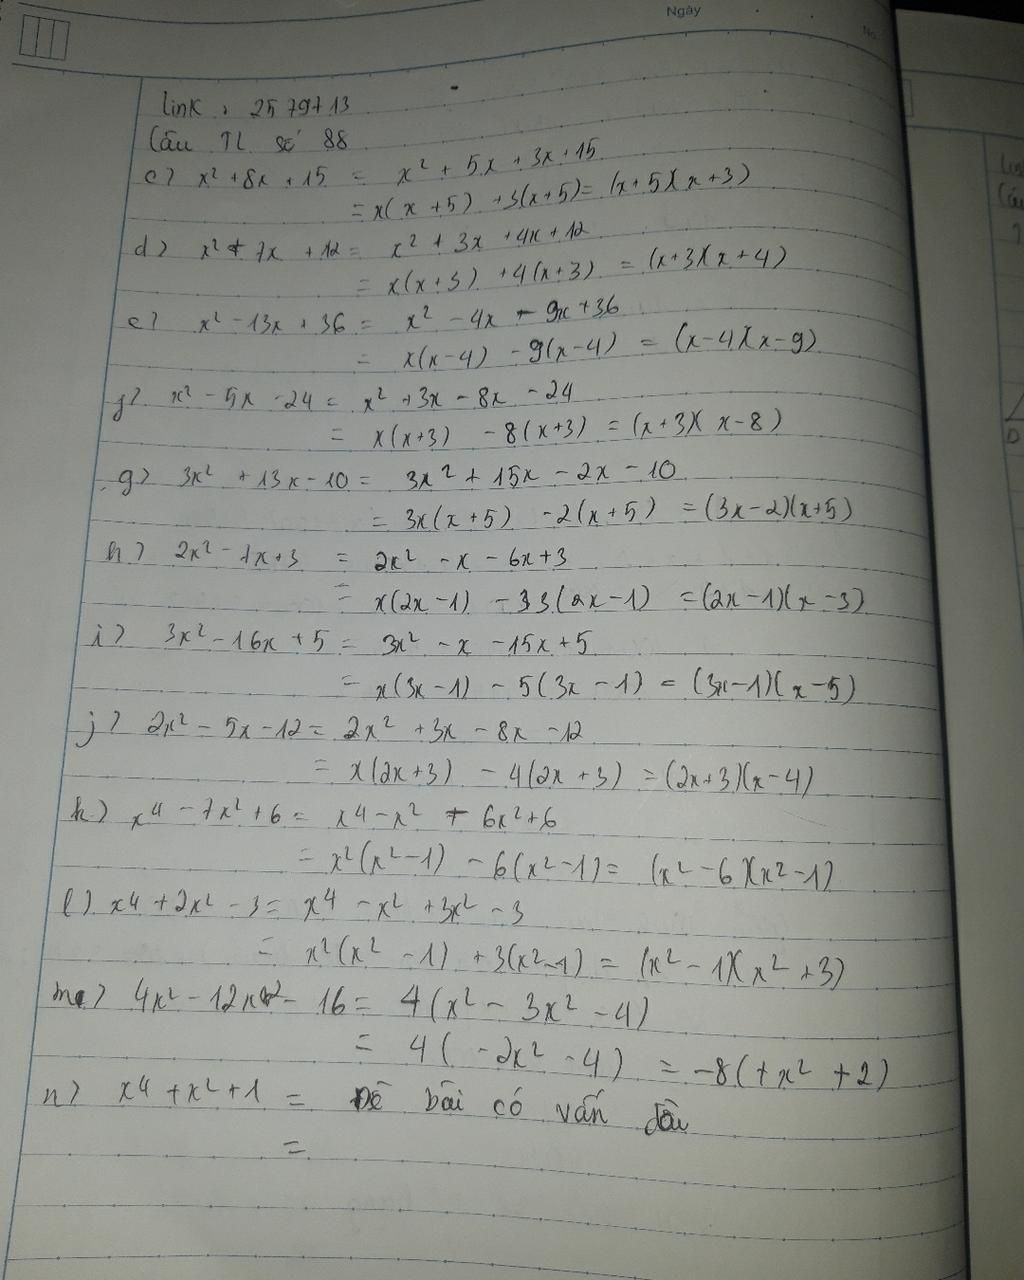 Ngày
No.
link : 2579713
Câu TL số 88
c) x² + 8x + 15 = x² + 5x + 3x + 15
= x(x + 5) + 3(x + 5) = (x + 5)(x + 3)
d) x² + 7x + 12 = x² + 3x + 4x + 12
= x(x + 3) + 4(x + 3) = (x + 3)(x + 4)
e) x² - 13x + 36 = x² - 4x - 9x + 36
= x(x - 4) - 9(x - 4) = (x - 4)(x - 9)
f) x² - 5x - 24 = x² + 3x - 8x - 24
= x(x + 3) - 8(x + 3) = (x + 3)(x - 8)
g) 3x² + 13x - 10 = 3x² + 15x - 2x - 10
= 3x(x + 5) - 2(x + 5) = (3x - 2)(x + 5)
h) 2x² - 7x + 3 = 2x² - x - 6x + 3
= x(2x - 1) - 33(2x - 1) = (2x - 1)(x - 3)
i) 3x² - 16x + 5 = 3x² - x - 15x + 5
= x(3x - 1) - 5(3x - 1) = (3x - 1)(x - 5)
j) 2x² - 5x - 12 = 2x² + 3x - 8x - 12
= x(2x + 3) - 4(2x + 3) = (2x + 3)(x - 4)
k) x⁴ - 7x² + 6 = x⁴ - x² - 6x² + 6
= x²(x² - 1) - 6(x² - 1) = (x² - 6)(x² - 1)
l) x⁴ + 2x² - 3 = x⁴ - x² + 3x² - 3
= x²(x² - 1) + 3(x² - 1) = (x² - 1)(x² + 3)
m) 4x² - 12x² - 16 = 4(x² - 3x² - 4)
= 4( - 2x² - 4) = -8(+x² + 2)
n) x⁴ + x² + 1 = Đề bài có vấn đề
=